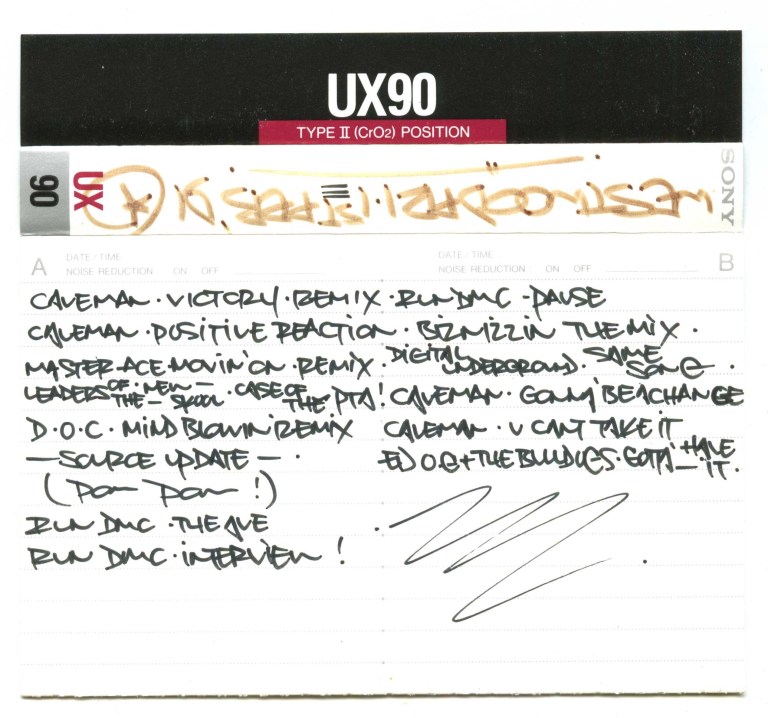 UX90
TYPE II (CrO2) POSITION
90
UX
WESTWOOD/RAP
SONY
A
DATE / TIME
NOISE REDUCTION ON OFF
DATE / TIME
NOISE REDUCTION ON OFF
B
CAVEMAN · VICTORY · REMIX ·
CAVEMAN · POSITIVE REACTION ·
MASTER ACE · MOVIN' ON · REMIX ·
LEADERS OF THE NEW SKOOL · CASE OF THE PTA!
D·O·C· MIND BLOWIN' REMIX
— SOURCE UPDATE — ·
RUN DMC · THE AVE
RUN DMC · INTERVIEW !
RUN DMC · PAUSE
BIZNIZZ IN THE MIX ·
DIGITAL UNDERGROUND · SAME SONG ·
CAVEMAN · GONNA BE A CHANGE
CAVEMAN · U CANT TAKE IT
ED O.G + THE BULLDOGS · GOTTA HAVE IT.